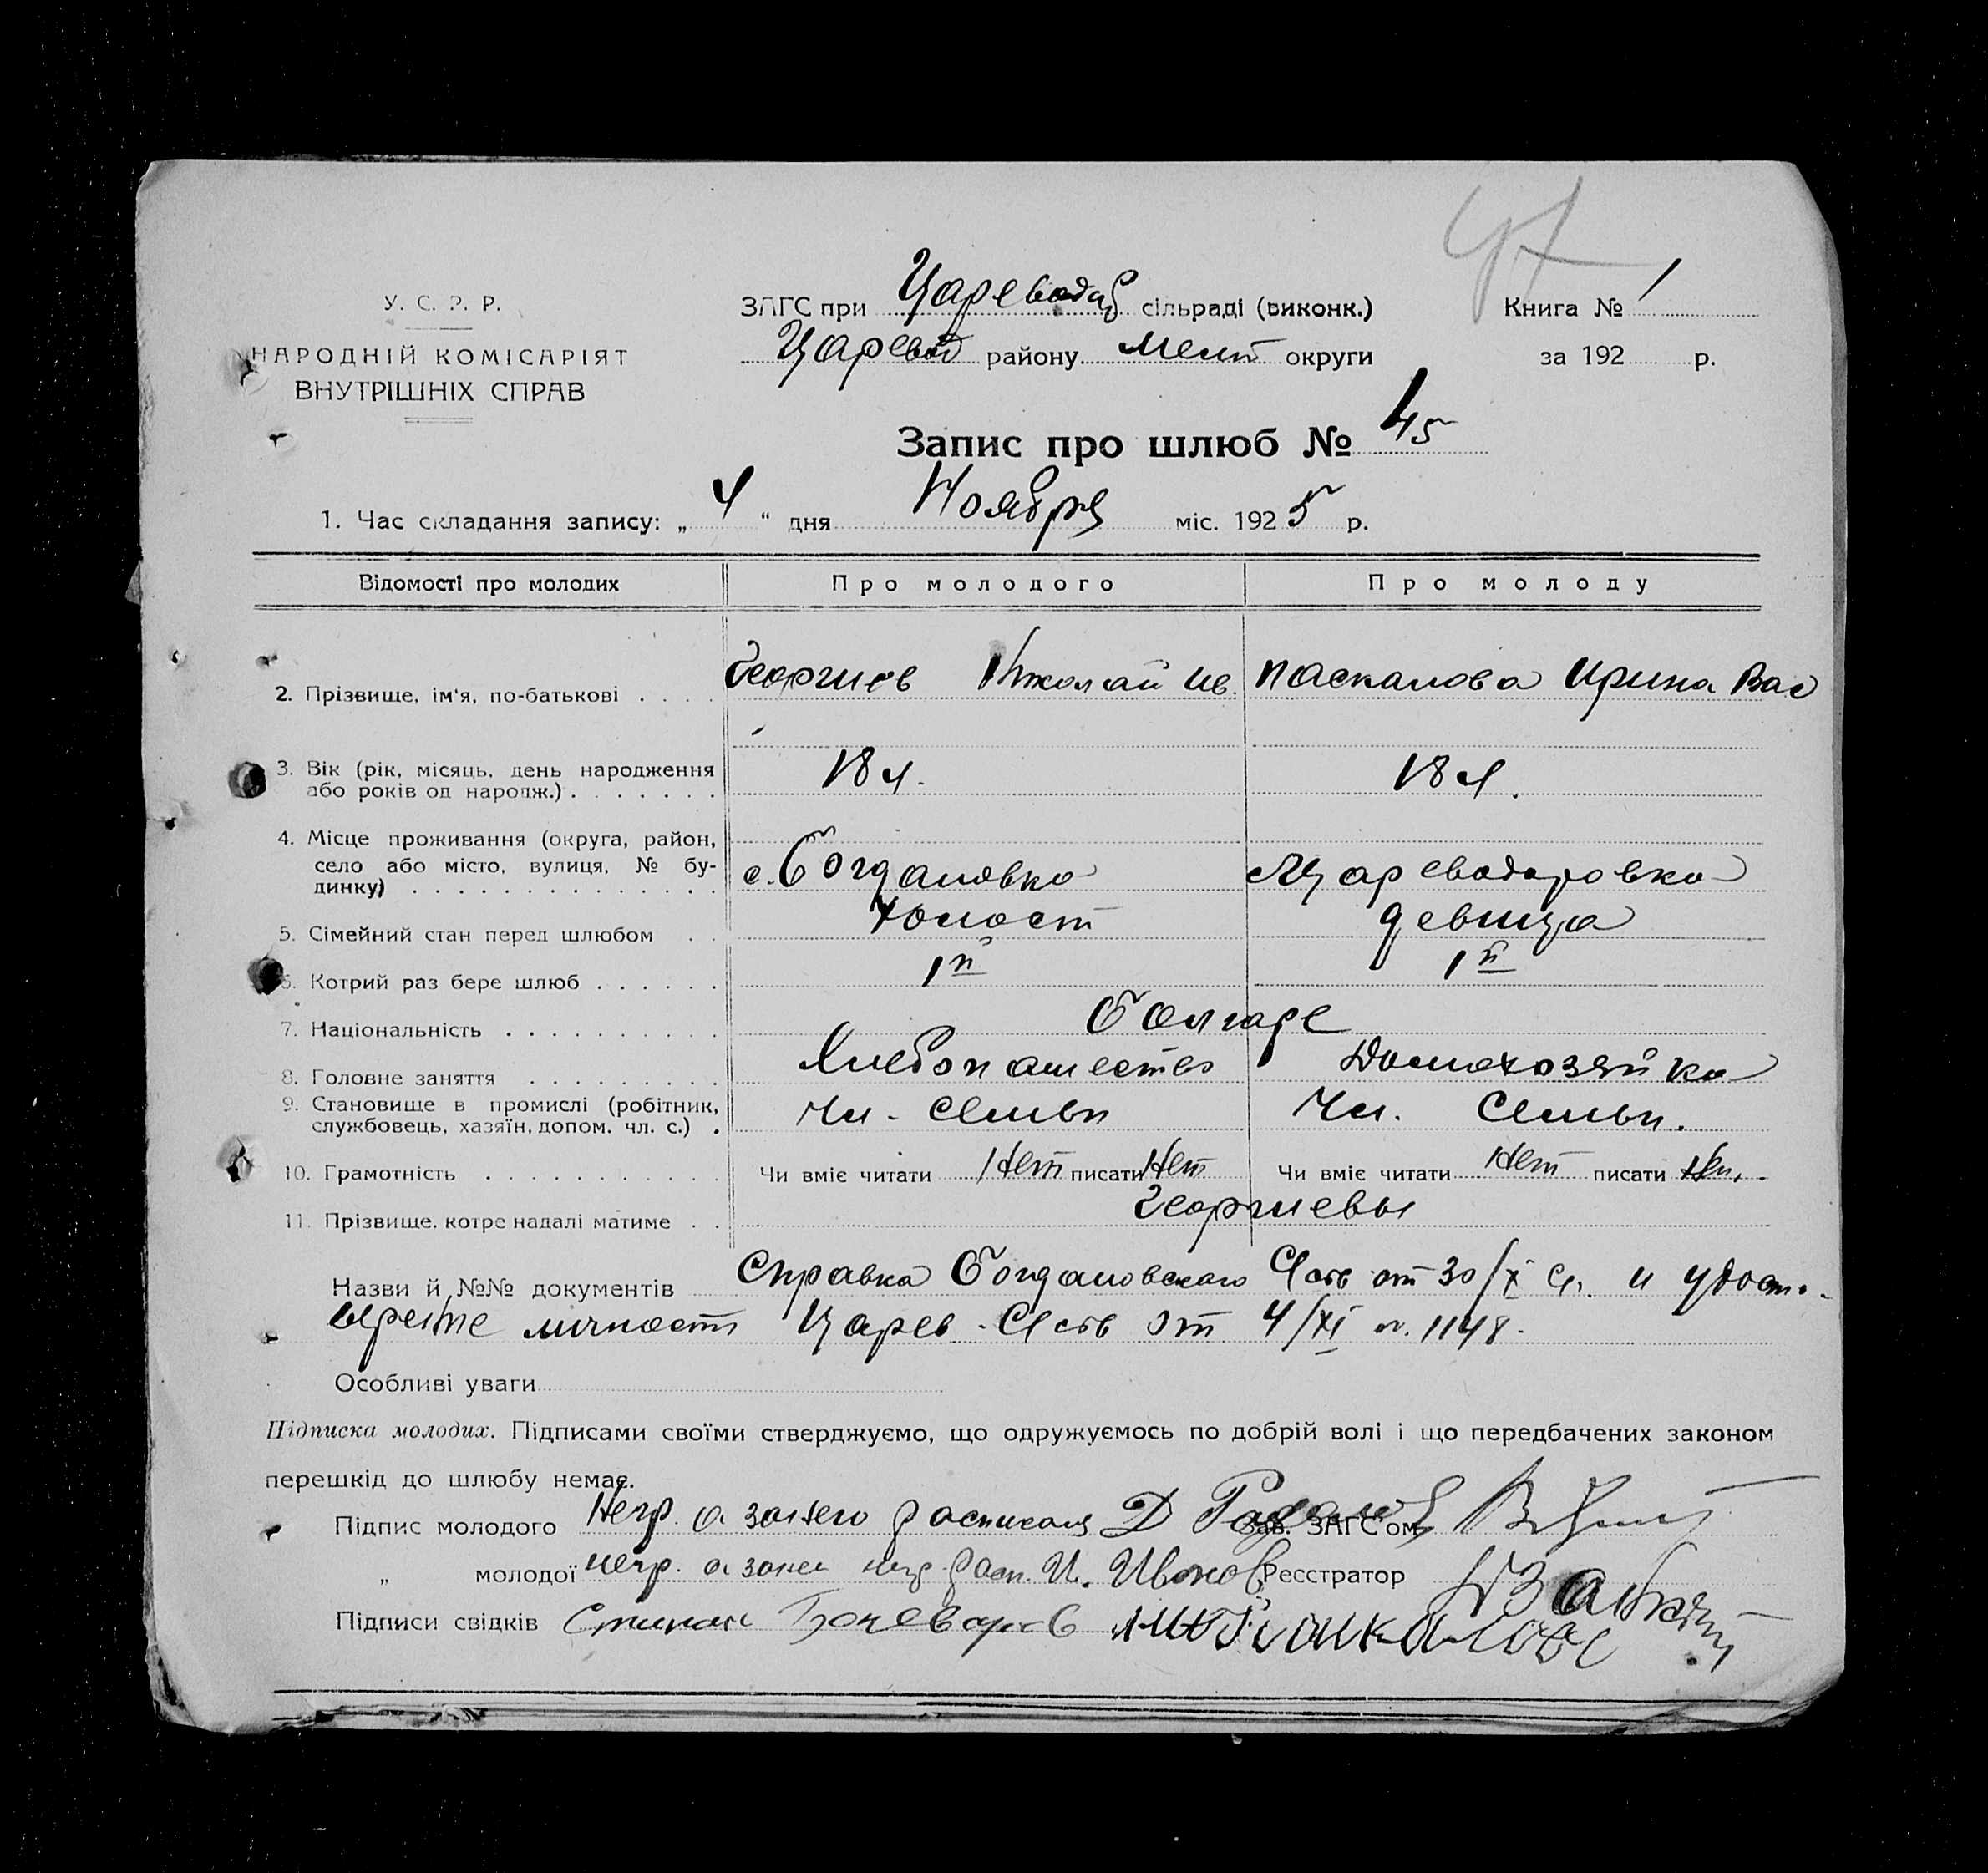 47
У. С. Р. Р.
НАРОДНІЙ КОМІСАРІЯТ
ВНУТРІШНІХ СПРАВ
ЗАГС при Царевод сільраді (виконк.)
Царевод району Мелит округи
Книга № 1
за 192 р.
Запис про шлюб № 45
1. Час складання запису: „ 4 “ дня Ноября міс. 1925 р.
Відомості про молодих Про молодого Про молоду
2. Прізвище, ім'я, по-батькові Георгиев Николай Ив. Паскалова Ирина Вас
3. Вік (рік, місяць, день народження
або років од народж.) 18 л. 18 л.
4. Місце проживання (округа, район,
село або місто, вулиця, № бу-
динку) с. Богдановка Цареводаровка
5. Сімейний стан перед шлюбом холост девица
6. Котрий раз бере шлюб 1й 1й
7. Національність болгаре
8. Головне заняття Хлебопашество Домохозяйка
9. Становище в промислі (робітник,
службовець, хазяїн, допом. чл. с.) Чл. семьи Чл. семьи.
10. Грамотність Чи вміє читати Нет писати Нет Чи вміє читати Нет писати Нет.
11. Прізвище, котре надалі матиме Георгиевы
Назви й №№ документів Справка Богдановского С/сов от 30/X с/г. и удосто-
верение личности Царев. С/сов от 4/XI № 1148.
Особливі уваги
Підписка молодих. Підписами своїми стверджуємо, що одружуємось по добрій волі і що передбачених законом
перешкід до шлюбу немає.
Підпис молодого Негр. а за него расписался Д Зав. ЗАГС'ом
„ молодої негр. а за нее расп. И. Иванов Реєстратор
Підписи свідків Степан